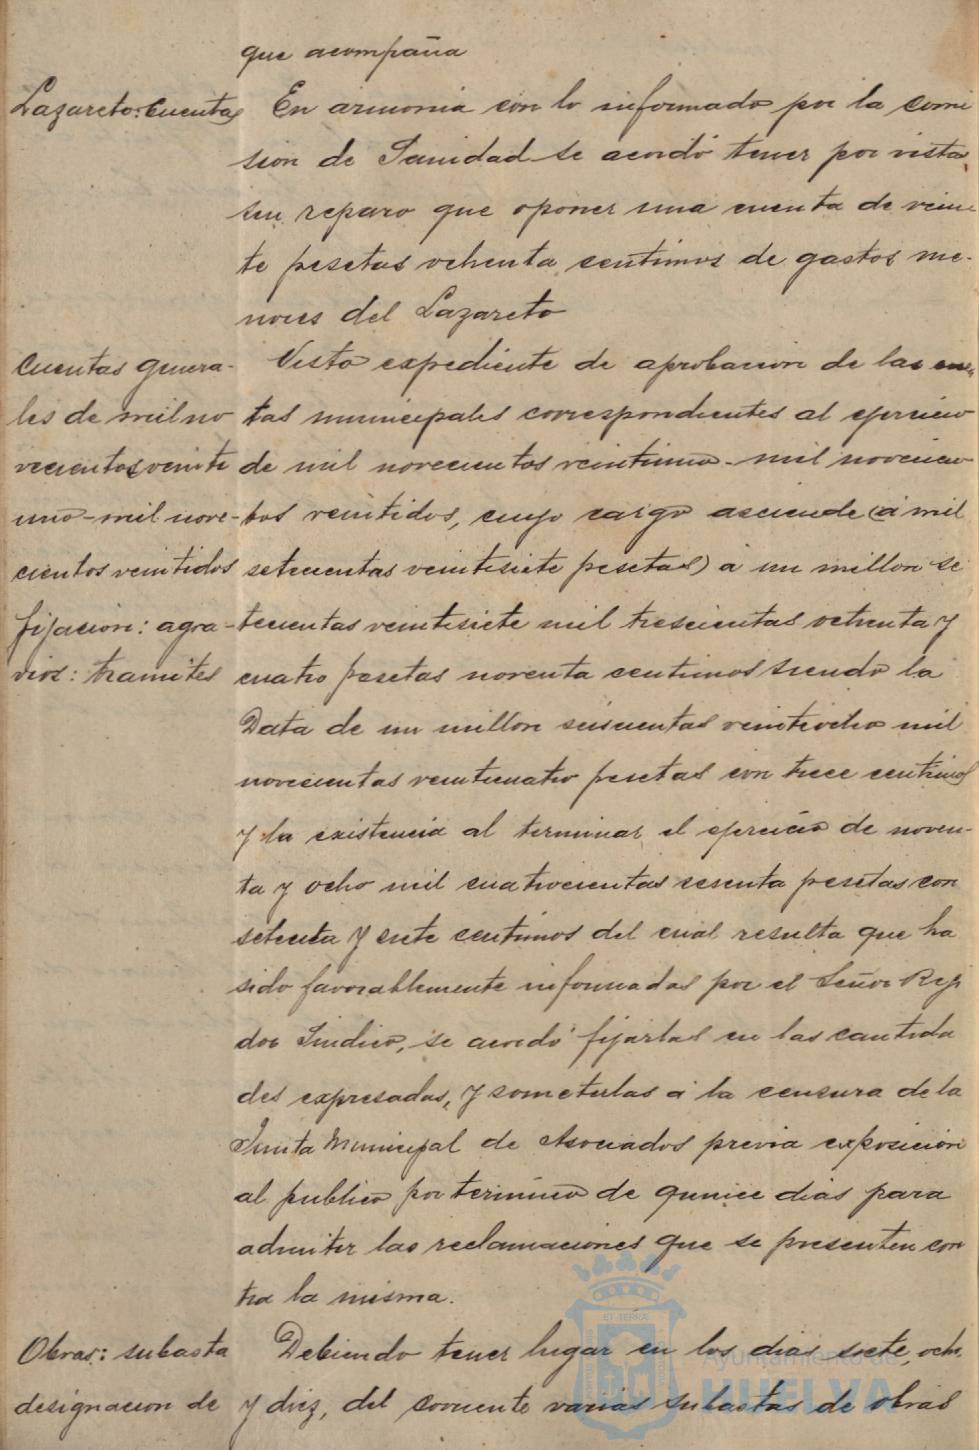 que acompaña
Lazareto: Cuentas
En armonia con lo informado por la comi
sion de Sanidad se acordó tener por vista
sin reparo que oponer una cuenta de vein
te pesetas ochenta centimos de gastos me-
nores del Lazareto
Cuentas genera-
les de mil no
vecientos veinte
uno-mil nove-
cientos veintidos
fijacion: agra-
vios: tramites
Visto expediente de aprobacion de las cuen
tas municipales correspondientes al ejercicio
de mil novecientos veintiuno-mil novecien
tos veintidos, cuyo cargo asciende (a mil
setecientas veintisiete pesetas) a un millon se
tecientas veintisiete mil trescientas ochenta y
cuatro pesetas noventa centimos siendo la
Data de un millon seiscientas veintiocho mil
novecientas veinticuatro pesetas con trece centimos
y la existencia al terminar el ejercicio de noven-
ta y ocho mil cuatrocientas sesenta pesetas con
setenta y siete centimos del cual resulta que ha
sido favorablemente informadas por el Señor Regi
dor Sindico, se acordó fijarlas en las cantida
des expresadas, y someterlas a la censura de la
Junta Municipal de Asociados previa exposición
al publico por termino de quince dias para
admitir las reclamaciones que se presenten con
tra la misma.
Obras: subasta
designacion de
Debiendo tener lugar en los dias siete, ocho,
y diez, del corriente varias subastas de obras
ET TERRA
Ayuntamiento de
HUELVA